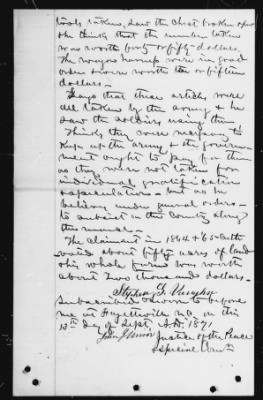 tools taken, saw the chest broken open
& he thinks that the number taken
was worth forty or fifty dollars.
The wagon harness were in good
order & were worth ten or fifteen
dollars—
Says that these articles were
all taken by the army & he
saw the soldiers using them
Thinks they were necessary to
Keep up the army & the govern
ment ought to pay for them
as they were not taken for
individual gratification
& speculation— but as he
believes under general orders—
to subsist on the County along
the
The Claimant in 1864 & '65 culti
vated about fifty acres of land
& his whole was worth
about two thousand dollars—
Stephen G. Vaughn
Subscribed & sworn to before
me in Fayetteville N.C. on this
13th day of Sept, A.D. 1871
Justice of the Peace
& Special